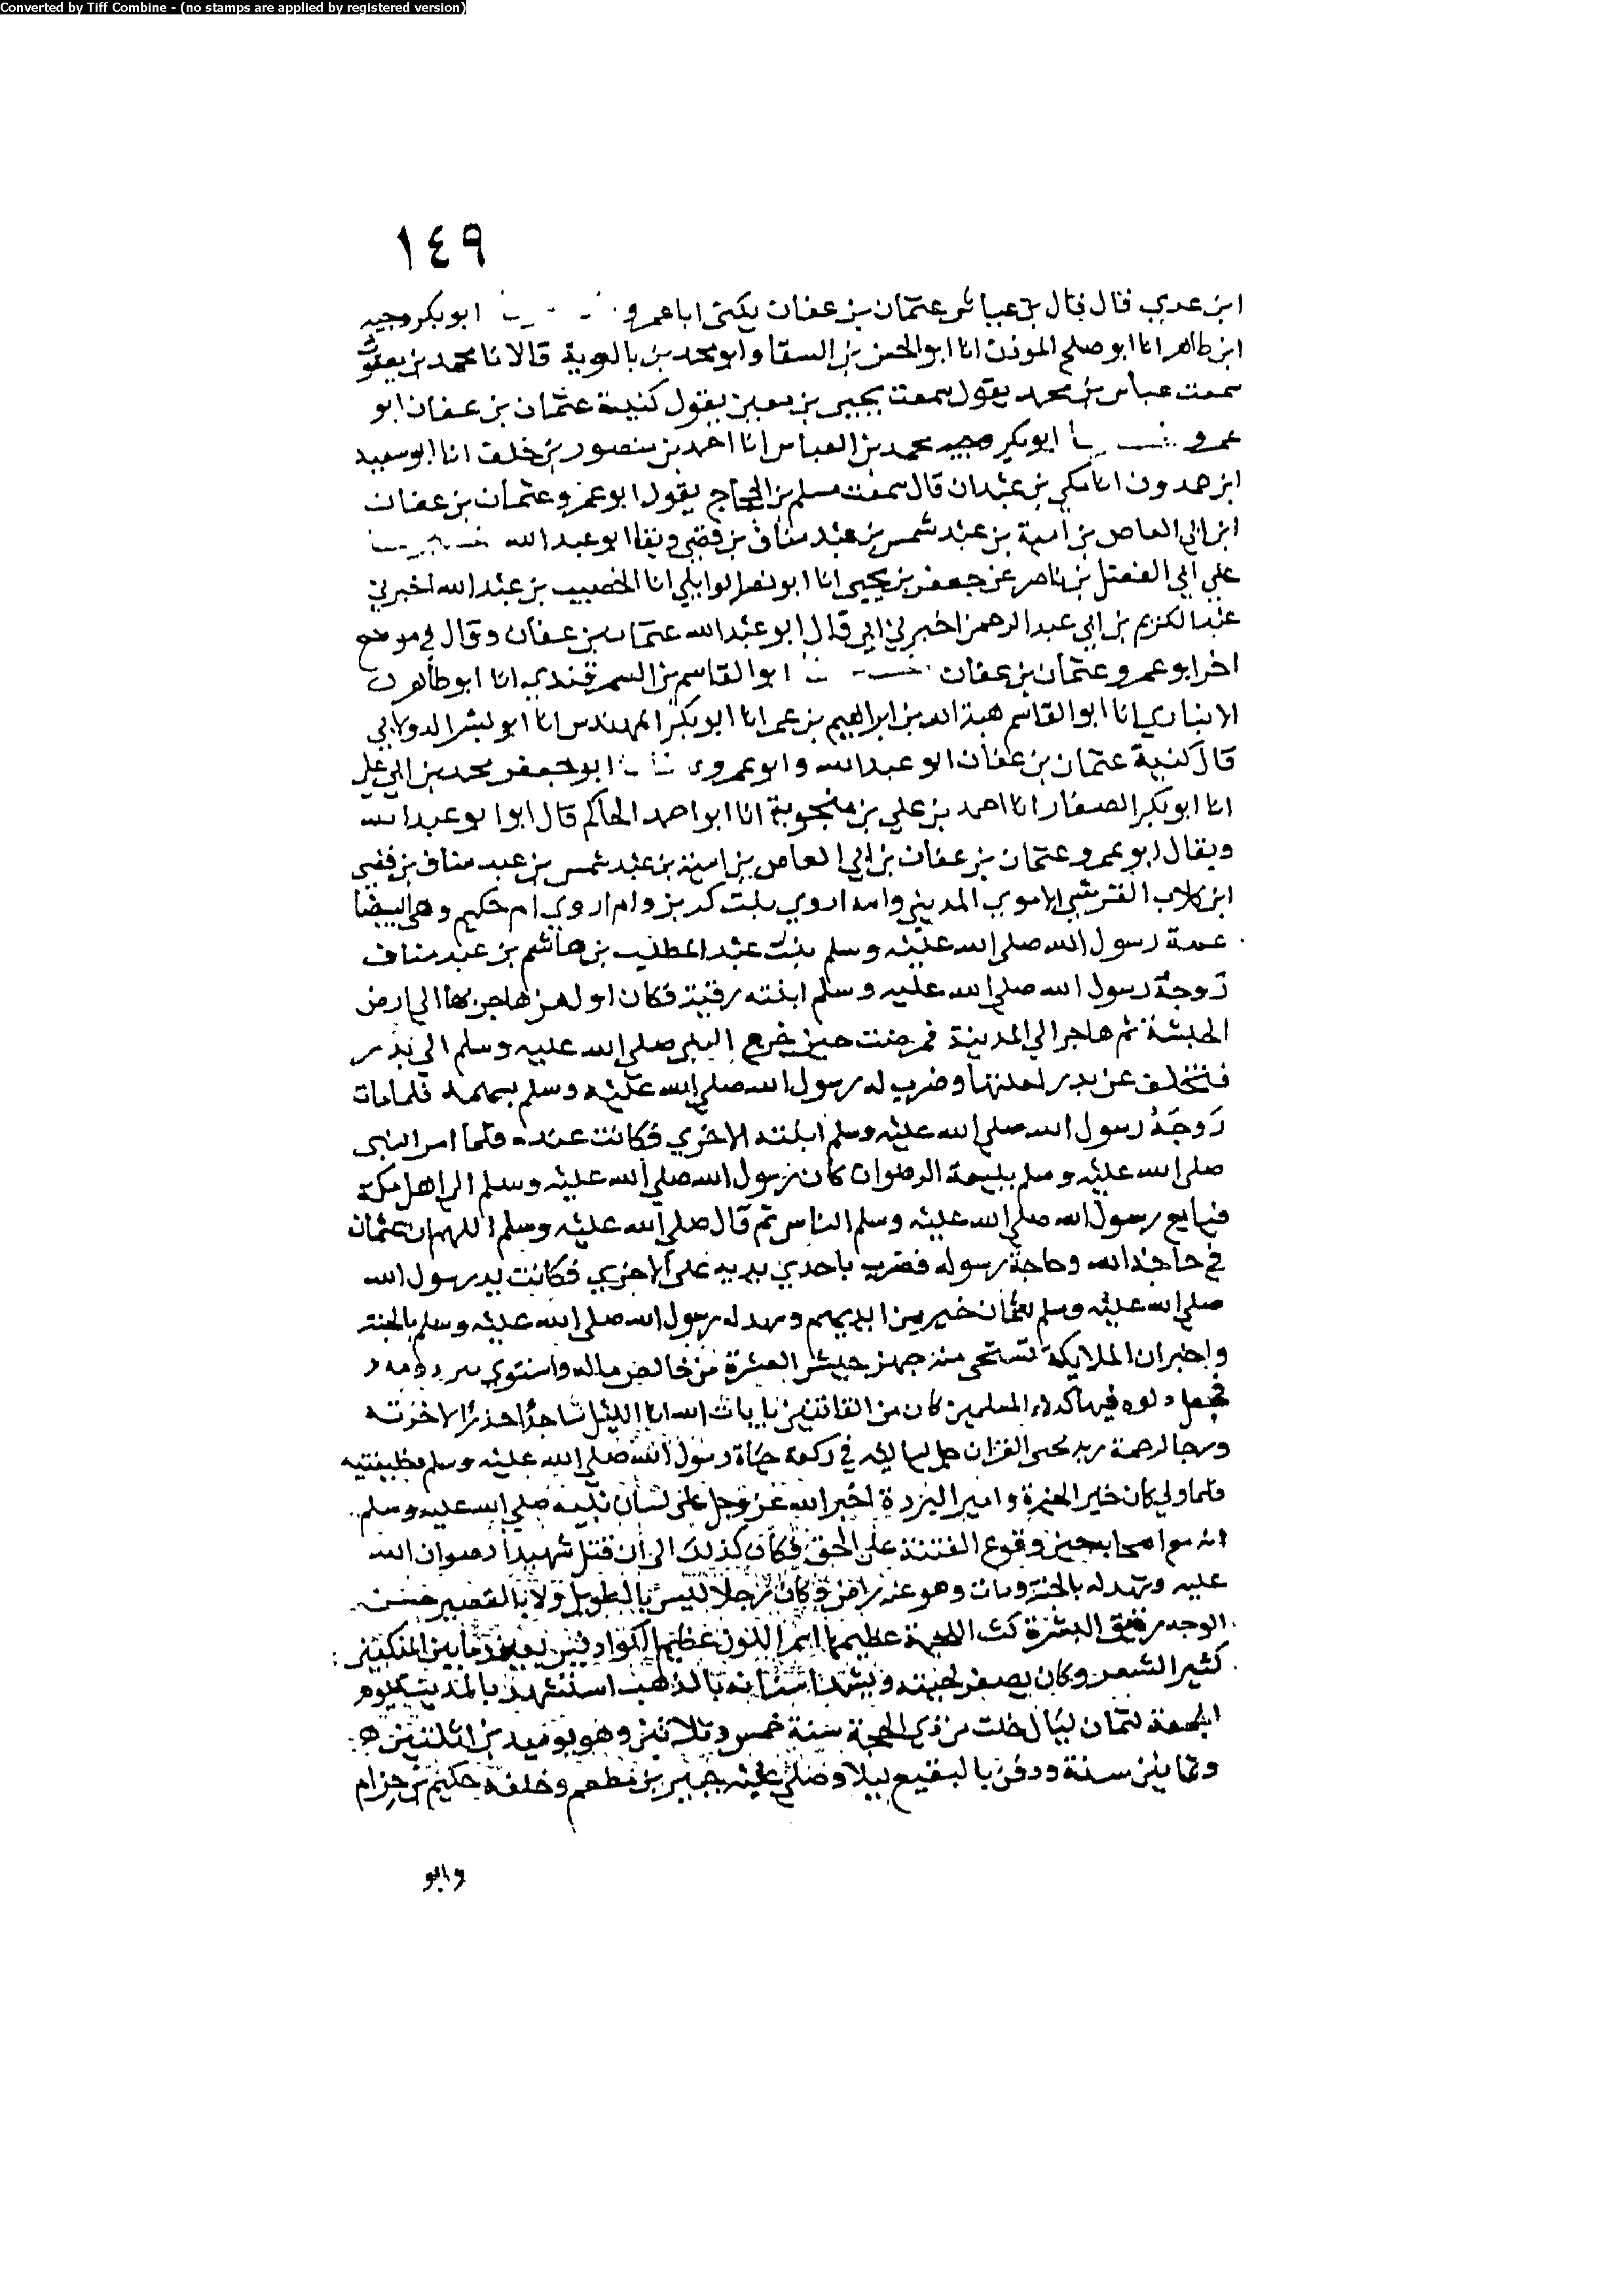 Converted by Tiff Combine - (no stamps are applied by registered version)
١٤٩
ابن عدي قال قال بن عياش عثمان بن عفان يكنى ابا عمرو ابو بكر وجيه
ابن طاهر انا ابو صلح الموذن انا ابو الحسن بن السقا وابو محمد بن بالوية قالا نا محمد بن يعقوب
سمعت عباس بن محمد يقول سمعت يحيى بن معين يقول كنية عثمان بن عفان ابو
عمرو ابو بكر محمد بن العباس انا احمد بن منصور بن خلف انا ابو سعيد
ابن حمدون انا مكي بن عبدان قال سمعت مسلم بن الحجاج يقول ابو عمرو عثمان بن عفان
ابن ابي العاص بن امية بن عبد شمس بن عبد مناف بن قصي ويقال ابو عبد الله
علي ابي الفضل بن ناصر عن جعفر بن يحيى انا ابو نصر الوايلي انا الخصيب بن عبد الله اخبرني
عبد الكريم بن ابي عبد الرحمن اخبرني ابي قال ابو عبد الله عثمان بن عفان وقال في موضع
اخر ابو عمرو عثمان بن عفان ابو القاسم بن السمرقندي انا ابو طاهر بن
الانباري انا ابو القاسم هبة الله بن ابراهيم بن عمر انا ابو بكر المهندس انا ابو بشر الدولابي
قال كنية عثمان بن عفان ابو عبد الله وابو عمرو ابو جعفر محمد بن ابي علي
انا ابو بكر الصفار انا احمد بن علي بن منجوية انا ابو احمد الحاكم قال ابو عبد الله
ويقال ابو عمرو عثمان بن عفان بن ابي العاص بن امية بن عبد شمس بن عبد مناف بن قصي
ابن كلاب القرشي الاموي المديني وامه اروي بنت كريز وام اروي ام حكيم وهي البيضا
عمة رسول الله صلى الله عليه وسلم بنت عبد المطلب بن هاشم بن عبد مناف
زوجه رسول الله صلى الله عليه وسلم ابنته رقية فكان اول من هاجر بها الى ارض
الحبشة ثم هاجر الى المدينة فمرضت حين خرج النبي صلى الله عليه وسلم الى بدر
فتخلف عن بدر لعلتها وضرب له رسول الله صلى الله عليه وسلم بسهمه فلما ماتت
زوجه رسول الله صلى الله عليه وسلم ابنته الاخري فكانت عنده فلما امر النبي
صلى الله عليه وسلم ببيعة الرضوان كان رسول رسول الله صلى الله عليه وسلم الى اهل مكة
فبايع رسول الله صلى الله عليه وسلم الناس ثم قال صلى الله عليه وسلم اللهم ان عثمان
في حاجة الله وحاجة رسوله فضرب باحدي يديه على الاخري فكانت يد رسول الله
صلى الله عليه وسلم لعثمان خير من ايديهم وشهد له رسول الله صلى الله عليه وسلم بالجنة
واخبر ان الملايكة تستحي منه جهز جيش العسرة من خالص ماله واشتري بير رومة
فجعل دلوه فيها كدلاء المسلمين كان من القانتين بايات الله انا الليل ساجدا حذرا لاخرته
ورجا لرحمة ربه يحيى القران جل لياليه في ركعة حياة رسول الله صلى الله عليه وسلم وخليفتيه
فلما ولي كان خير الخيرة وامير البررة اخبر الله عز وجل على لسان نبيه صلى الله عليه وسلم
انه مع اصحابه حين وقوع الفتنة على الحق فكان كذلك الى ان قتل شهيدا رضوان الله
عليه وشهد له بالجنة ومات وهو عنه راض وكان رجلا ليس بالطويل ولا بالقصير حسن
الوجه رقيق البشرة كث اللحية عظيمها اسمر اللون عظيم الكراديس بعيد ما بين المنكبين
كثير الشعر وكان يصفر لحيته ويشد اسنانه بالذهب استشهد بالمدينة يوم
الجمعة لثمان ليال خلت من ذي الحجة سنة خمس وثلاثين وهو يوميذ بن اثنتين
وثمانين سنة ودفن بالبقيع ليلا وصلى عليه جبير بن مطعم وخلفه حكيم بن حزام
وابو